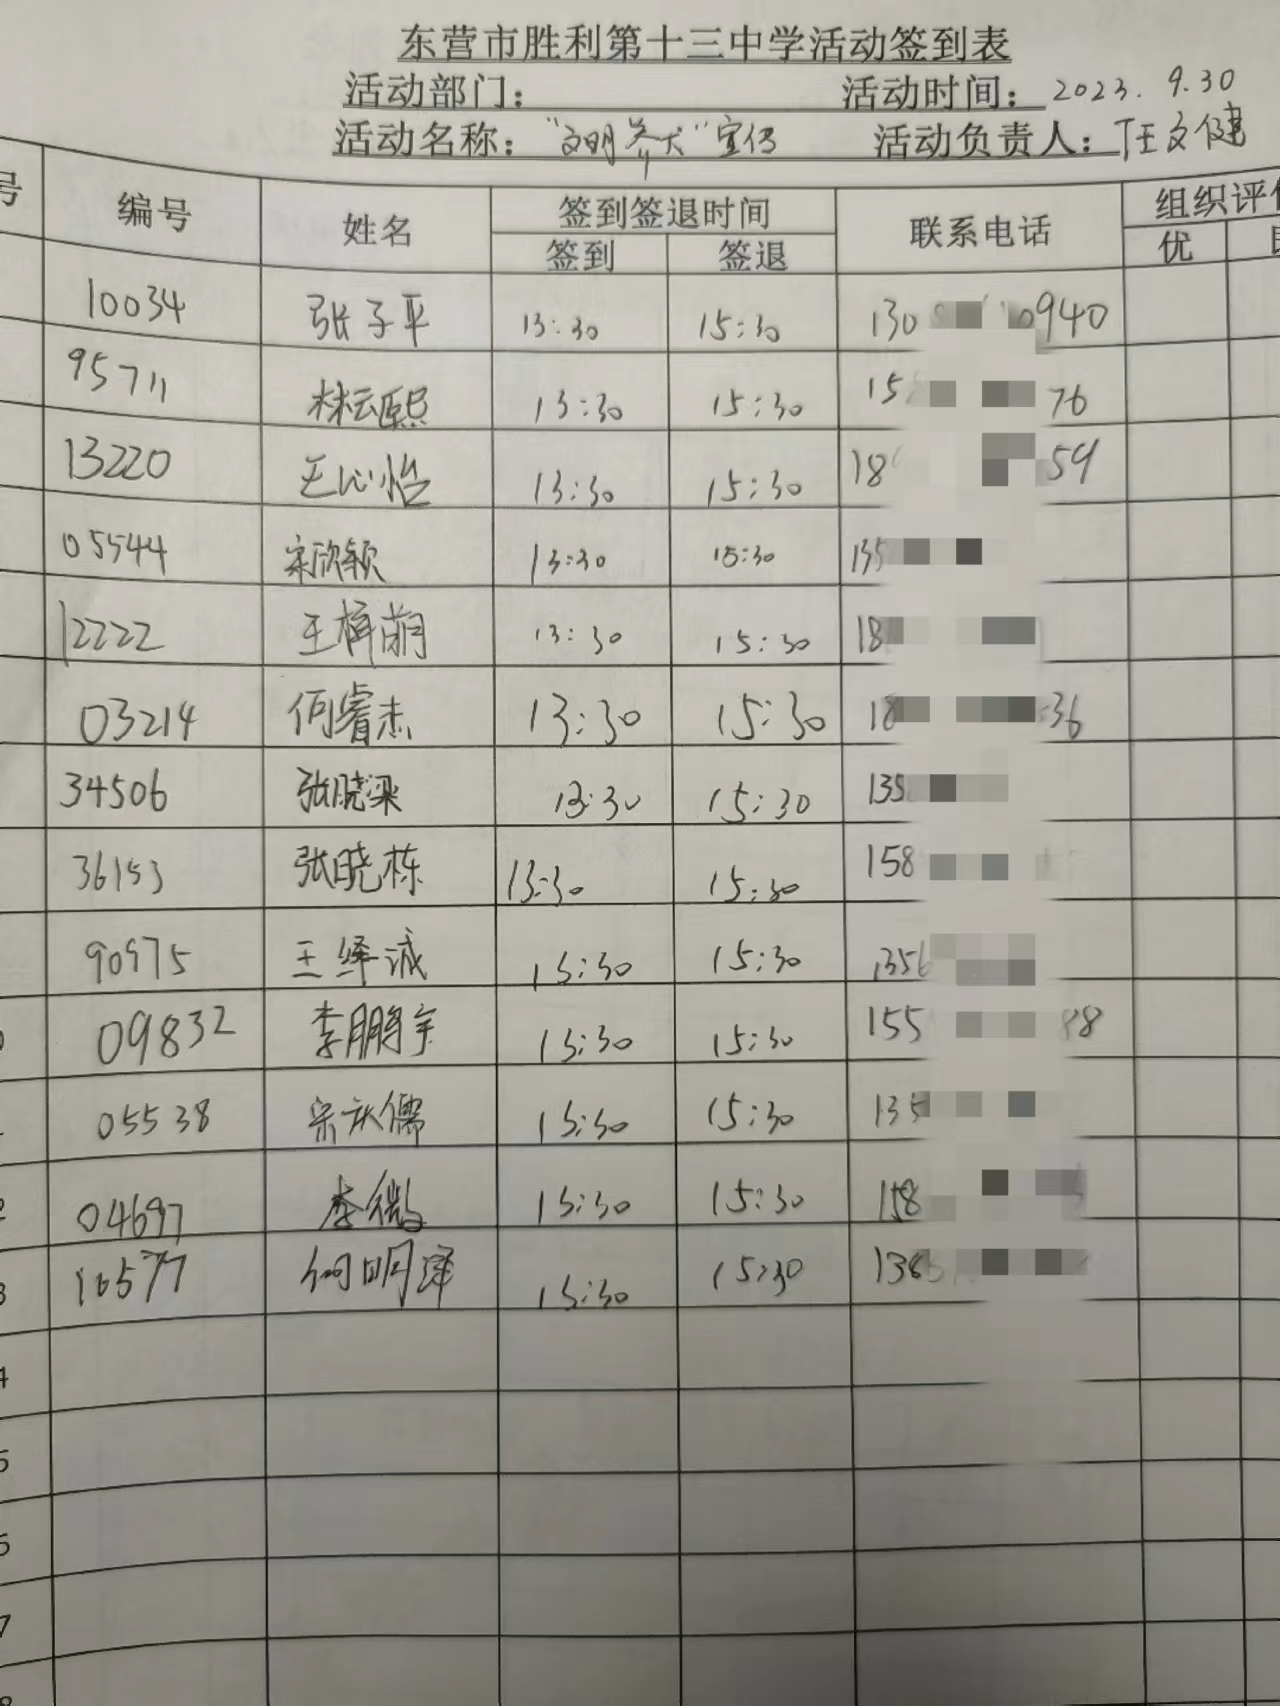 东营市胜利第十三中学活动签到表
活动部门： 活动时间： 2023. 9.30
活动名称： “文明养犬”宣传 活动负责人： 任文健
号 编号 姓名 签到签退时间 联系电话 组织评价
签到 签退 优
10034 张子平 13:30 15:30 130 0940
95711 林耘熙 13:30 15:30 15 76
13220 王心怡 13:30 15:30 18 59
05544 宋欣颖 13:30 15:30 135
12222 王梓萌 13:30 15:30 18
03214 何睿杰 13:30 15:30 18 36
34506 张晓梁 13:30 15:30 135
36153 张晓栋 13:30 15:30 158
90975 王绎诚 13:30 15:30 1356
09832 李鹏宇 13:30 15:30 155 88
05538 宗庆儒 13:30 15:30 135
04697 李微 13:30 15:30 158
16577 何明泽 13:30 15:30 136